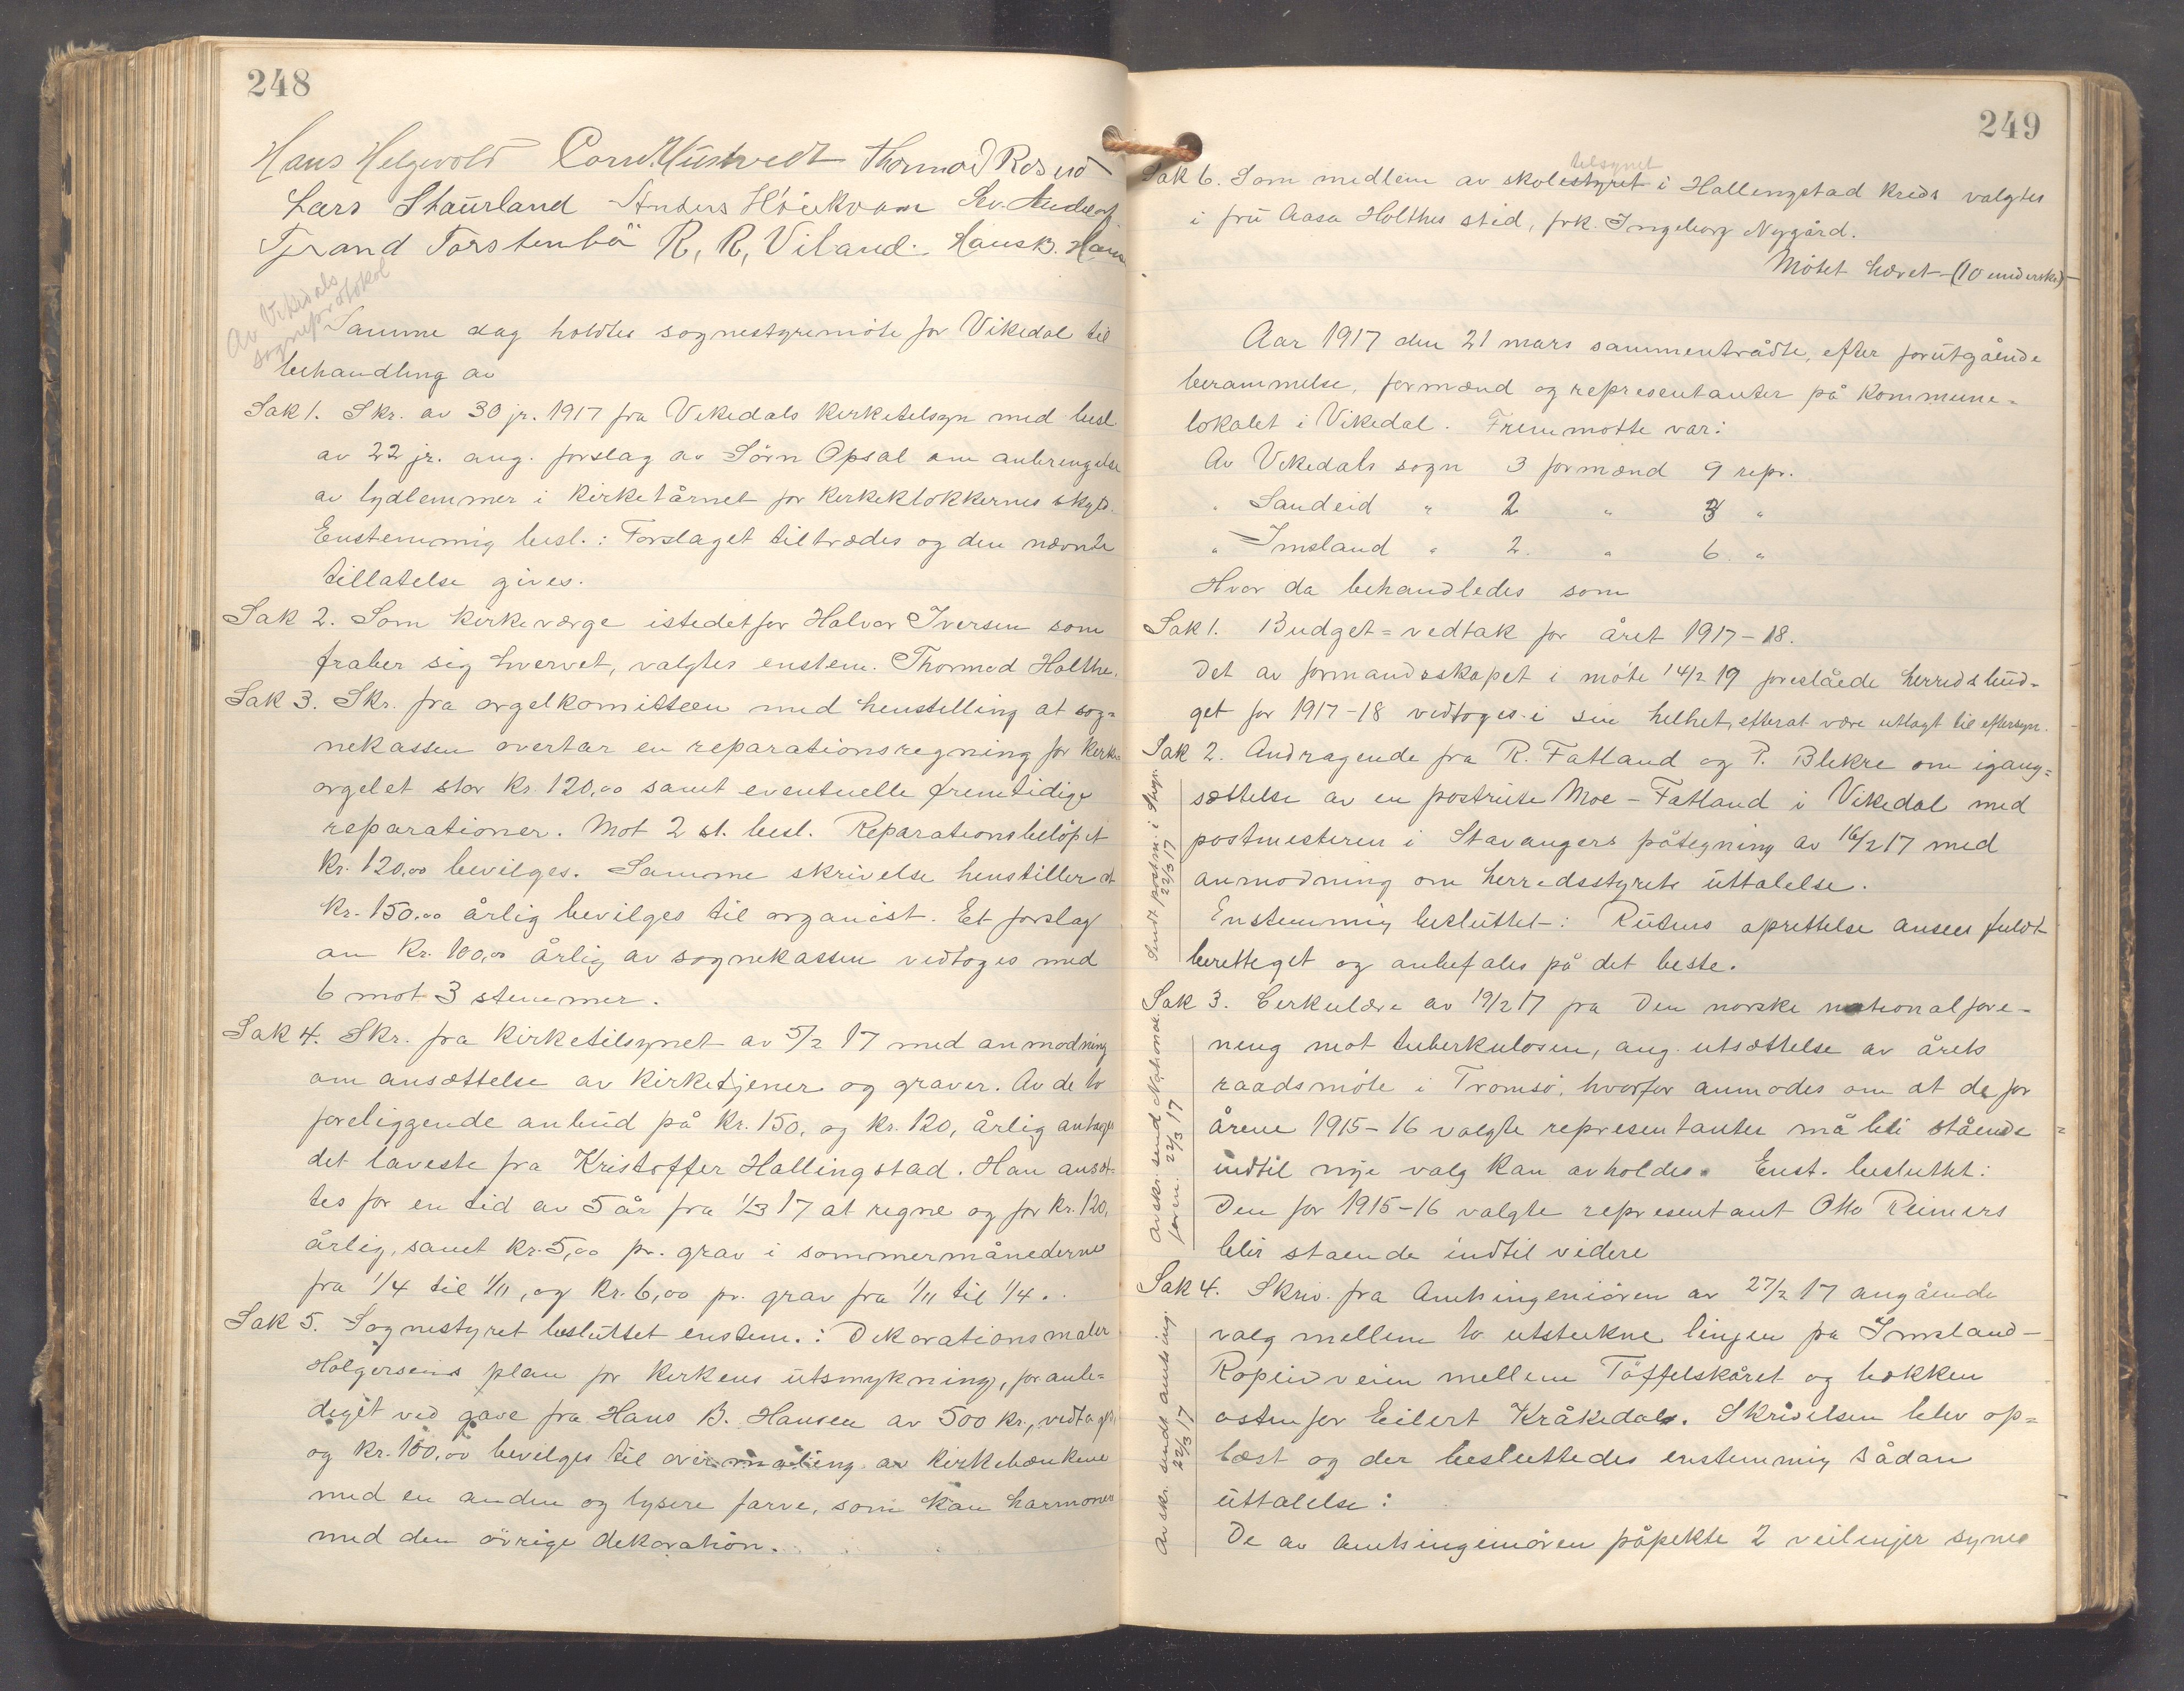 248
Hans Helgevold Corn. Østvedt Thormod
Lars Staurland Anders Höiekvam Sv. Andersen
Tjerand Torstenbö R. R. Viland. Hans B. Hansen
Av Vikedals
sogneprotokol
Samme dag holdtes sognestyremöte for Vikedal til
behandling av
Sak 1. Skr. av 30 jr. 1917 fra Vikedals kirketilsyn med besl.
av 22 jr. ang. forslag av Sörn Opsal om anbringelse
av lydlemmer i kirketårnet for kirkeklokkernes skyld.
Enstemmig besl.: Forslaget tiltrædes og den nævnte
tillatelse gives.
Sak 2. Som kirkeværge istedetfor Halvor Iversen som
fraber sig hvervet, valgtes enstem. Thormod Holthe.
Sak 3. Skr. fra orgelkomitteen med henstilling at sog=
nekassen overtar en reparationsregning for kirke
orgelet stor kr. 120,00 samt eventuelle fremtidige
reparationer. Mot 2 st. besl. Reparationsbelöpet
kr. 120,00 bevilges. Samme skrivelse henstiller at
kr. 150,00 årlig bevilges til organist. Et forslag
om kr. 100,00 årlig av sognekassen vedtoges med
6 mot 3 stemmer.
Sak 4. Skr. fra kirketilsynet av 5/2 17 med anmodning
om ansættelse av kirketjener og graver. Av de to
foreliggende anbud på kr. 150, og kr. 120, årlig antages
det laveste fra Kristoffer Hallingstad. Han ansæt=
tes for en tid av 5 år fra 1/3 17 at regne og for kr. 120,
årlig, samt kr. 5,00 pr. grav i sommermånederne
fra 1/4 til 1/11, og kr. 6,00 pr. grav fra 1/11 til 1/4.
Sak 5. Sognestyret besluttet enstem.: Dekorationsmaler
Holgersens plan for kirkens utsmykning, foranle=
diget ved gave fra Hans B. Hansen av 500 kr., vedtages
og kr. 100,00 bevilges til overmaling av kirkebænkene
med en anden og lysere farve, som kan harmonere
med den övrige dekoration.
249
tilsynet
Sak 6. Som medlem av skolestyret i Hallengstad kreds valgtes
i fru Aasa Holthes sted, frk. Ingeborg Nygård.
Mötet hævet - (10 underskr.)
Aar 1917 den 21 mars sammentrådte, efter forutgående
berammelse, formænd og representanter på kommune=
lokalet i Vikedal. Fremmötte var:
Av Vikedals sogn 3 formænd 9 repr.
" Sandeid " 2 " 3 "
" Imsland " 2 " 6 "
Hvor da behandledes som
Sak 1. Budget=vedtak for året 1917-18.
Det av formandsskapet i möte 14/2 19 foreslåede herredsbud=
get for 1917-18 vedtoges i sin helhet, efterat være utlagt til eftersyn.
Sak 2. Andragende fra R. Fatland og P. Blikre om igang=
sættelse av en postrute Moe - Fatland i Vikedal med
postmesteren i Stavangers påtegning av 16/2 17 med
anmodning om herredsstyrets uttalelse.
Enstemmig besluttet: Rutens oprettelse ansees fuldt
berettiget og anbefales på det beste.
Sendt postm. i Stvgr.
22/3 17
Sak 3. Cerkulære av 19/2 17 fra Den norske nationalfore-
ning mot tuberkulosen, ang. utsættelse av årets
raadsmöte i Tromsö, hvorfor anmodes om at de for
årene 1915-16 valgte representanter må bli stående
indtil nye valg kan avholdes. Enst. besluttet:
Den for 1915-16 valgte representant Otto Reimers
blir stående indtil videre
Avskr. send National
foren. 22/3 17
Sak 4. Skriv. fra Amtsingeniören av 27/2 17 angående
valg mellem to utstukne linjer på Imsland-
Ropeidveien mellem Töffelskåret og bakken
östenfor Eilert Kråkedals. Skrivelsen blev op=
læst og der besluttedes enstemmig sådan
uttalelse:
De av Amtsingeniören påpekte 2 veilinjer synes
Avskr. sendt amtsing.
22/3 17